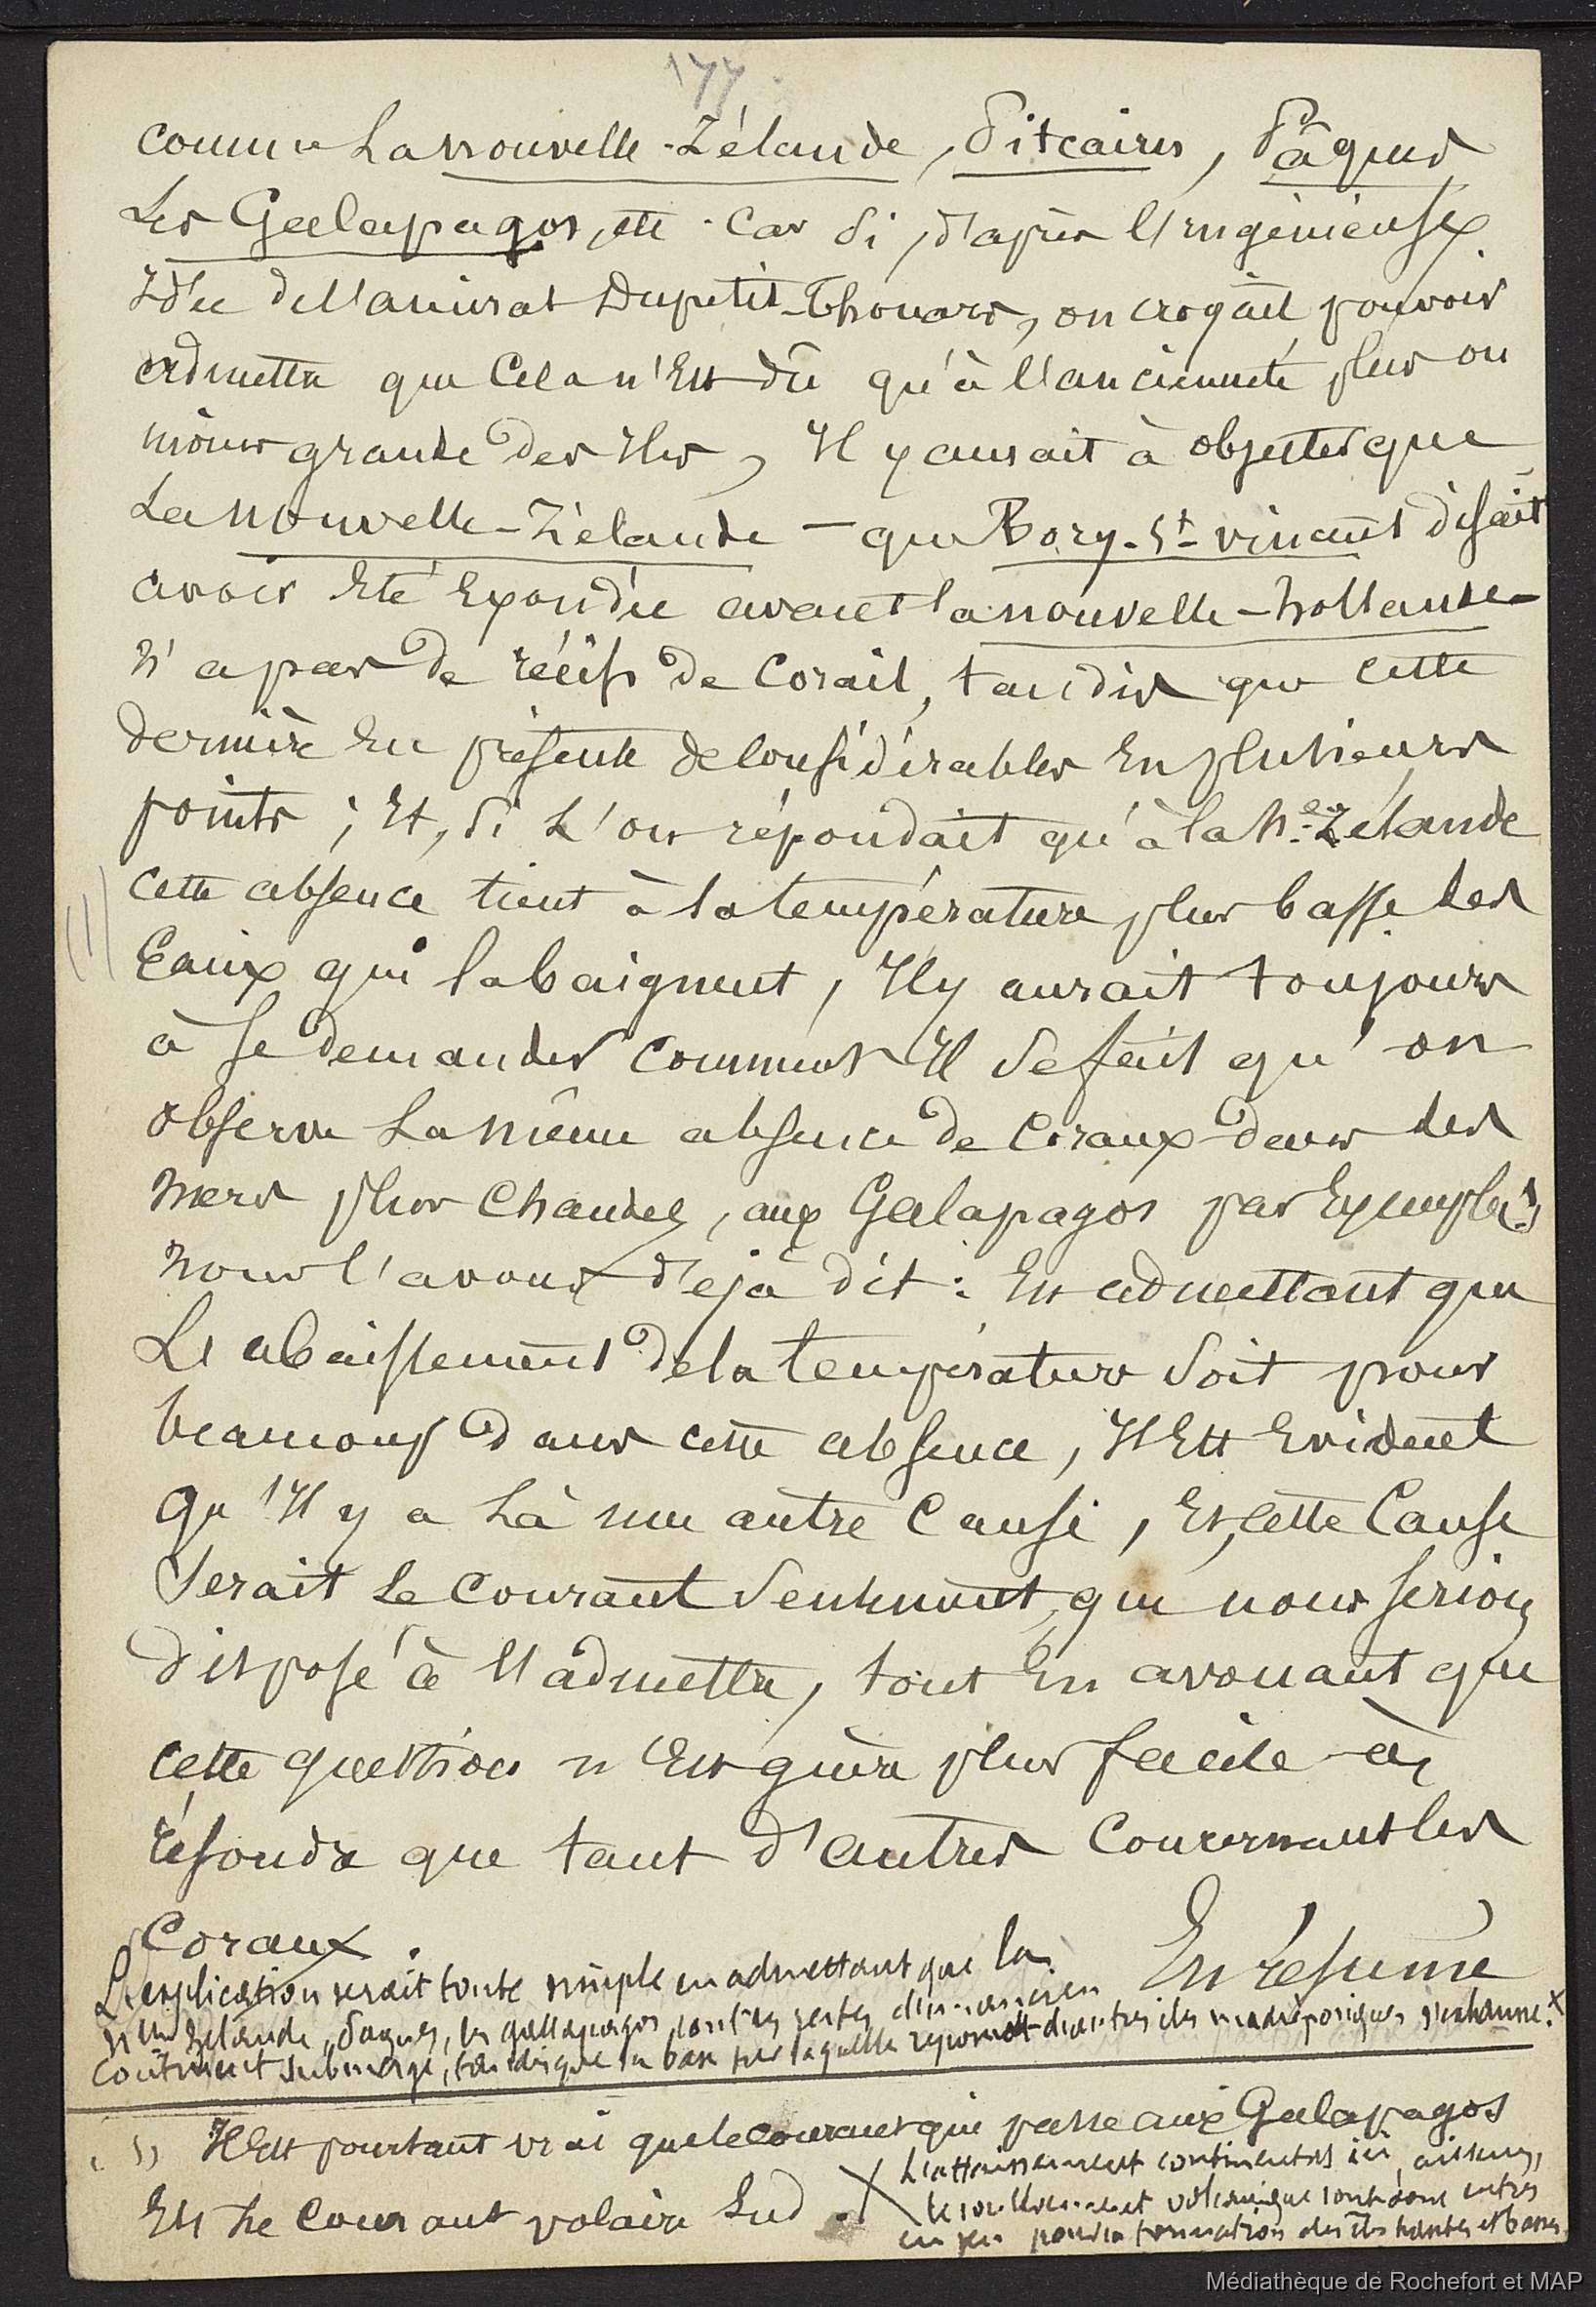 177.
comme La nouvelle-Zélande, Pitcairn, Pâques
Les Galapagos, etc. Car si, d'après l'ingénieuse
Idée de l'amiral Dupetit-Thouars, on croyait pouvoir
admettre que Cela n'Est dû qu'à l'ancienneté plus ou
moins grande des Iles, Il y aurait à objecter que
La Nouvelle-Zélande - que Bory-St-vincent disait
avoir Eté Exondée avant la nouvelle-hollande -
n'a pas de récifs de Corail, tandis que cette
dernière En présente de Considérables En plusieurs
points ; Et, si L'on répondait qu'à la Nle-Zélande
cette absence tient à la température plus basse des
(1)
Eaux qui la baignent, Il y aurait toujours
à se demander Comment Il se fait qu'on
observe La même absence de Coraux dans des
mers plus Chaudes, aux Galapagos par Exemple (1)
nous l'avons déjà dit : En admettant que
L'abaissement de la température soit pour
beaucoup dans cette absence, Il Est Evident
qu'Il y a Là une autre Cause, Et cette Cause
serait Le Courant seulement, que nous serions
disposé à l'admettre, tout En avouant que
cette question n'Est guère plus facile à
résoudre que tant d'autres Concernant les
Coraux.
En résumé
L'explication serait toute simple en admettant que la
Nlle Zélande, Pâques, les Gallapagos sont les restes d'un ancien
Continent submergé, tandis que la base sur laquelle reposent d'autres îles madréporiques s'exhausse. X
(1) Il Est pourtant vrai que le courant qui passe aux Galapagos
Est Le Courant polaire Sud.
X L'affaissement continental ici, ailleurs,
le soulèvement volcanique sont donc entrés
en jeu pour la formation des îles hautes et basses.
Médiathèque de Rochefort et MAP